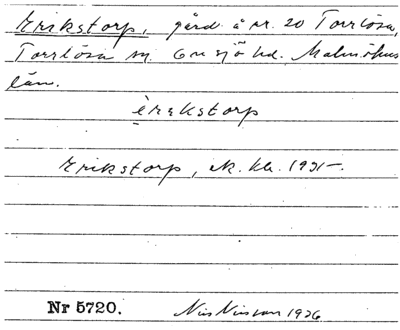 Erikstorp, gård å nr. 20 Torrlösa,
Torrlösa sn. Onsjö hd. Malmöhus
län.
èrekstorp
Erikstorp, ek. kb. 1931-.
Nr 5720. Nils Nilsson 1936